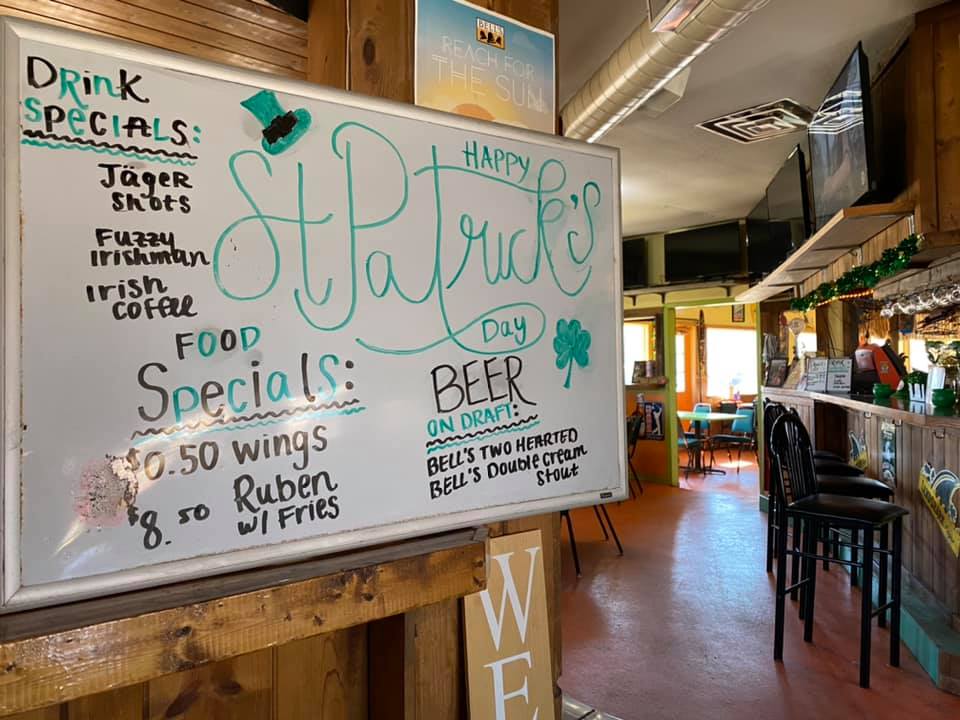 BELL'S
REACH FOR
THE SUN
DRink
SPECIALS:
Jäger
Shots
Fuzzy
irishman
irish
coffee
HAPPY
St Patrick's
Day
FOOD
Specials:
$0.50 wings
$8.50 Ruben
w/ Fries
BEER
ON DRAFT:
BELL'S TWO HEARTED
BELL'S Double Cream
Stout
WE